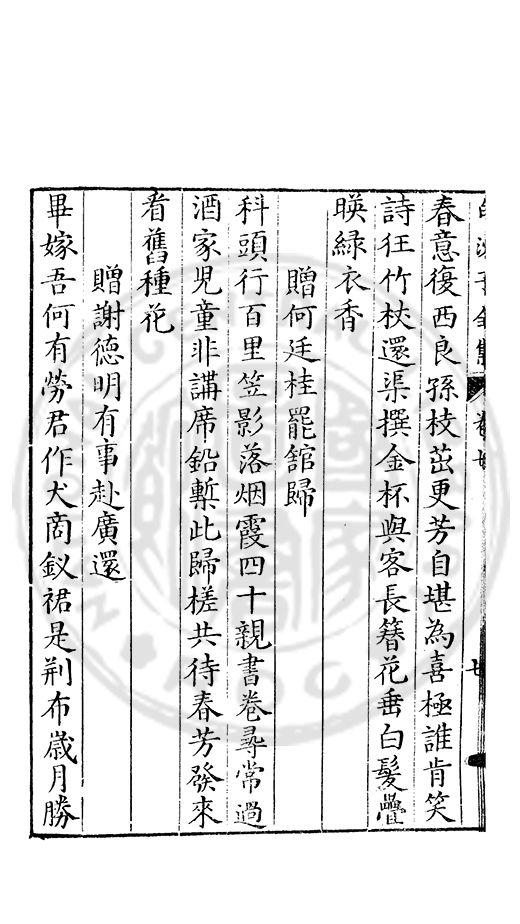 春意復西良孫枝茁更芳自堪為喜極誰肯笑
詩狂竹杖還渠撰金杯與客長簪花垂白髮疊
暎綠衣香
贈何廷桂罷舘歸
科頭行百里笠影落烟霞四十親書卷尋常過
酒家兒童非講席鉛槧此歸槎共待春芳發來
看舊種花
贈謝德明有事赴廣還
畢嫁吾何有勞君作犬商釵裙是荆布歲月勝